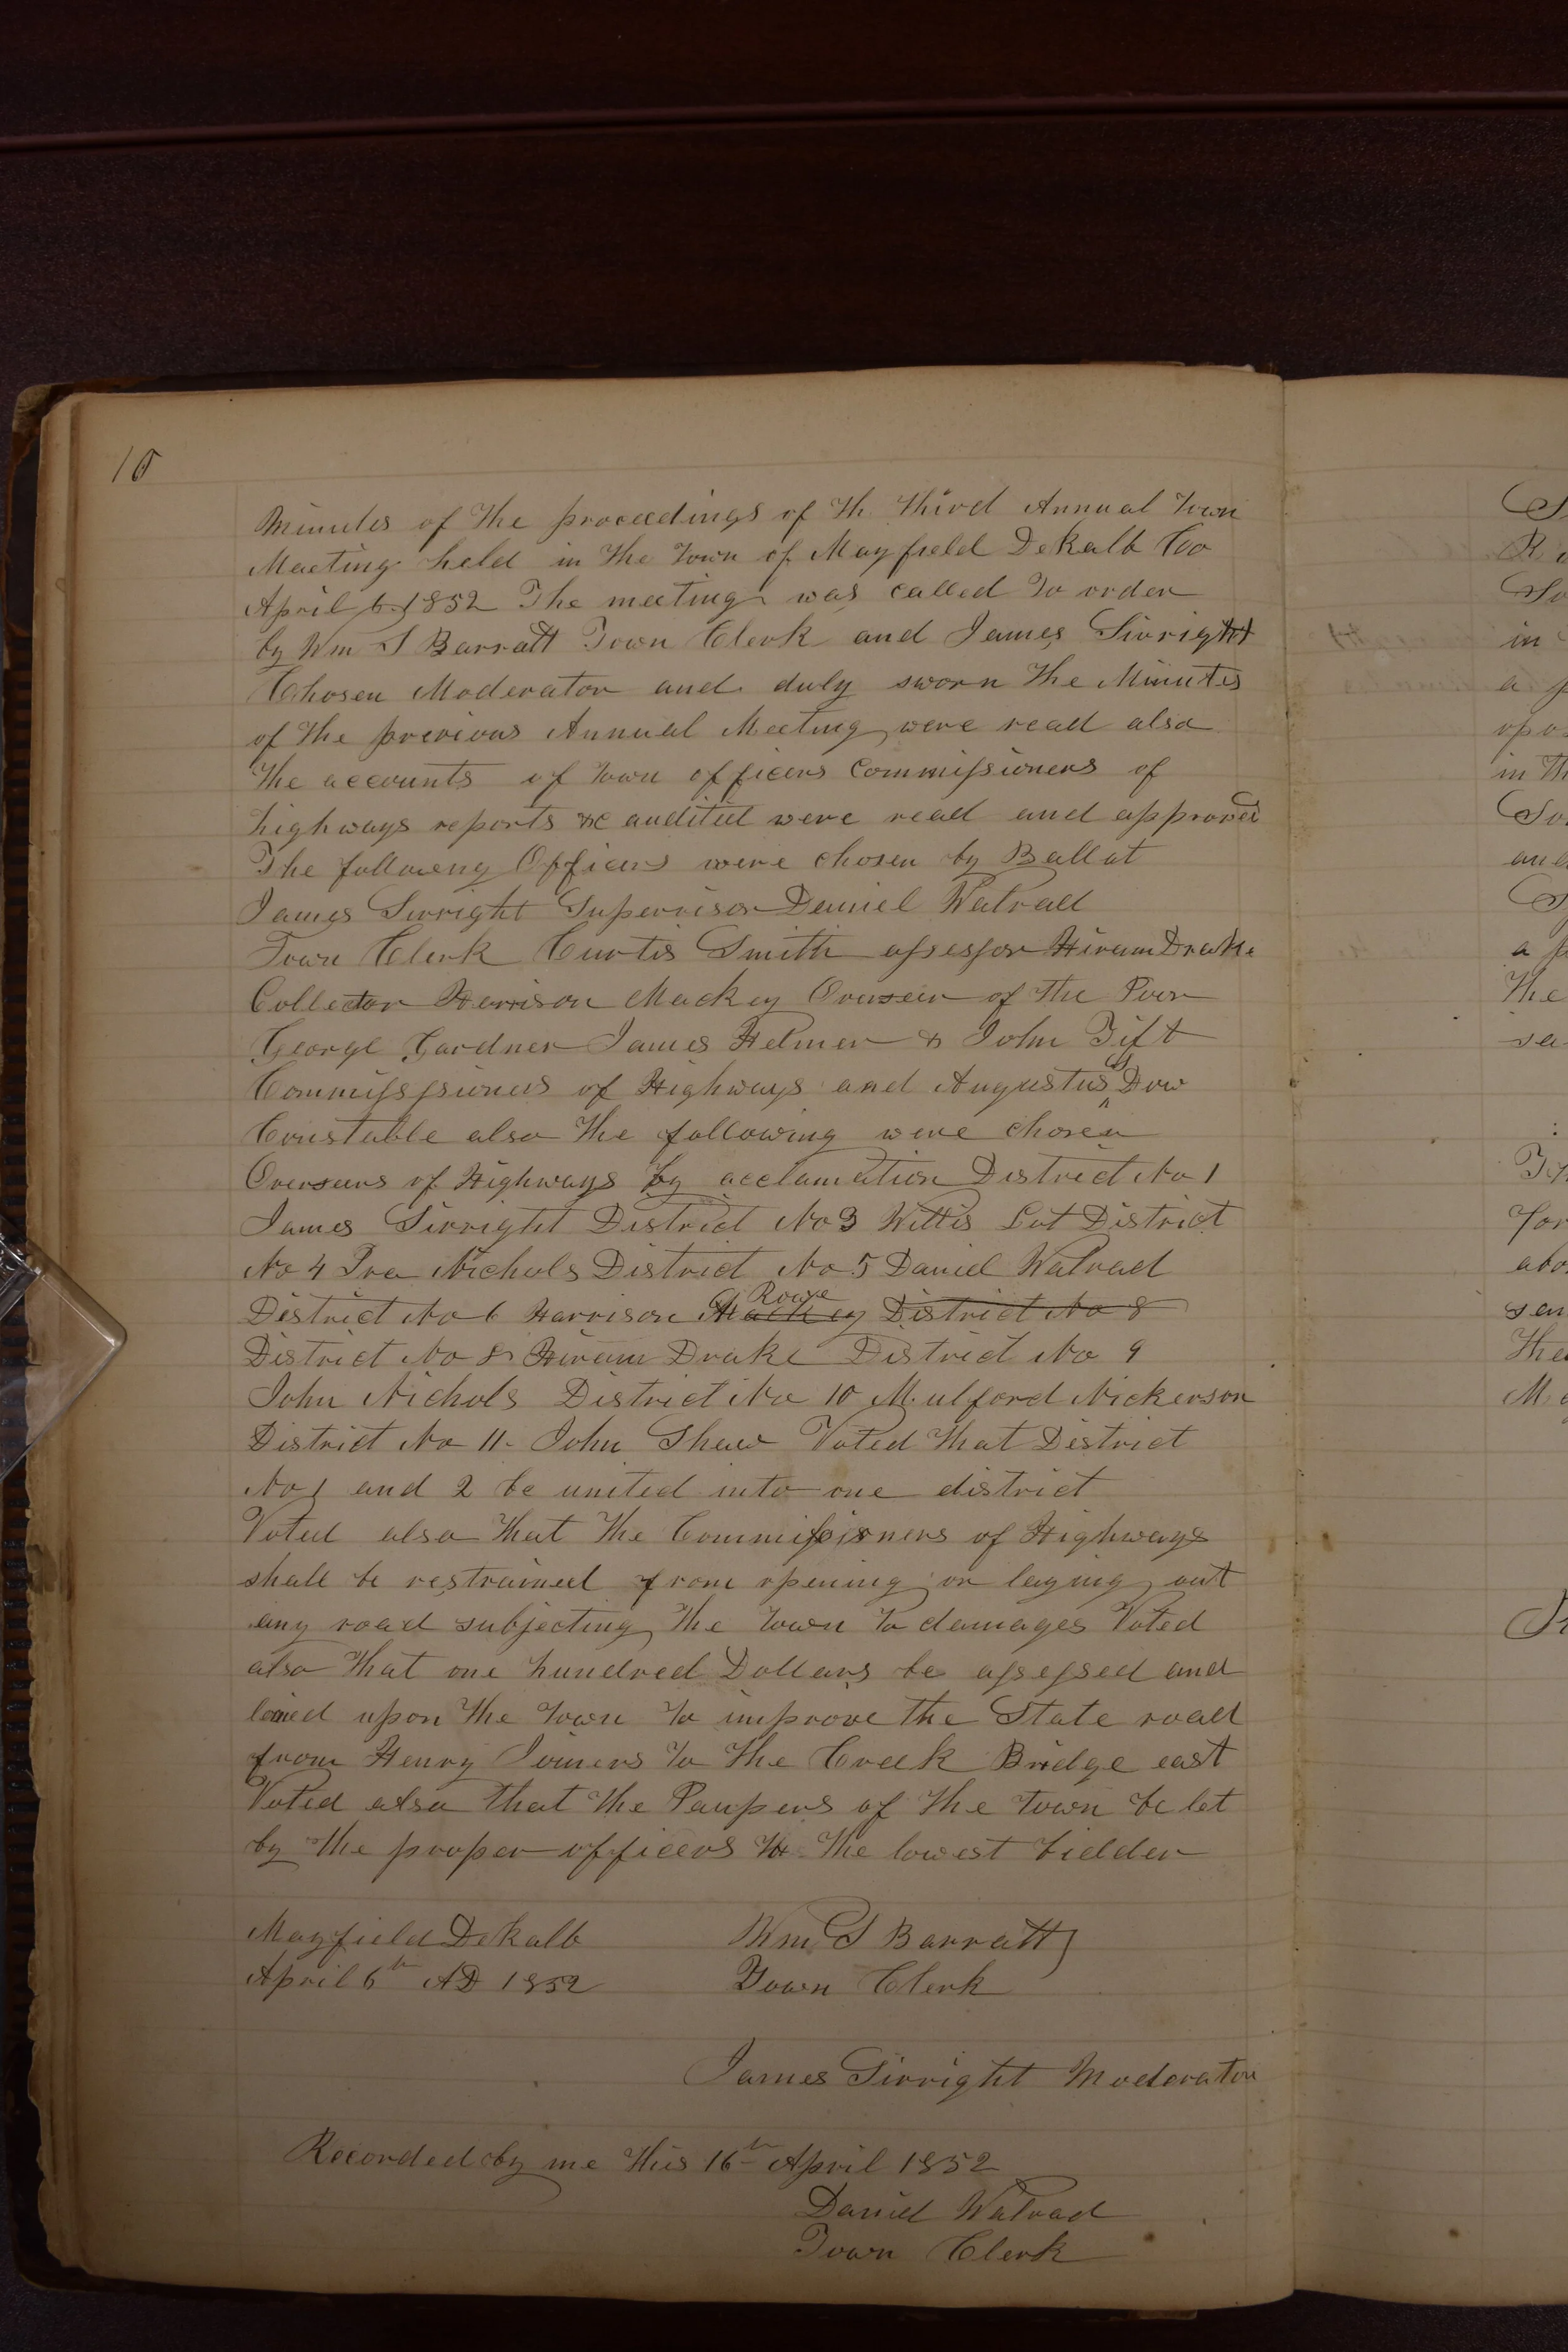 10
Minutes of the proceedings of th third Annual Town
Meeting held in the Town of Mayfield DeKalb Co
April 6. 1852 The meeting was called to order
by Wm S Barratt Town Clerk and James Sivright
Chosen Moderator and duly sworn the Minutes
of the previous Annual Meeting were read also
the accounts of Town officers Commissioners of
highways reports &c audited were read and approved
The following Officers were chosen by Ballot
James Sivright Supervisor Daniel Walrad
Town Clerk Curtis Smith assessor Hiram Drake
Collector Harrison Mackey Overseer of the Poor
George Gardner James Helmer & John Tift
Commissioners of Highways and Augustus Dow
Constable also the following were chosen
Overseers of Highways by acclamation District No 1
James Sivright District No 3 Willis Lot District
No 4 Ira Nichols District No 5 Daniel Walrad
Rowe
District No 6 Harrison Mackey District No 8
District No 8 Hiram Drake District No 9
John Nichols District No 10 Mulford Nickerson
District No 11. John Shaw Voted that District
No 1 and 2 be united into one district
Voted also that the Commissioners of Highways
shall be restrained from opening or laying out
any road subjecting the Town to damages Voted
also that one hundred Dollars be assessed and
upon the Town to improve the State road
from Henry Joiners to the Creek Bridge east
Voted also that the Paupers of the town be let
by the proper officers to the lowest bidder
Mayfield DeKalb Wm S Barratt
April 6th AD 1852 Town Clerk
James Sivright Moderator
Recorded by me this 16th April 1852
Daniel Walrad
Town Clerk